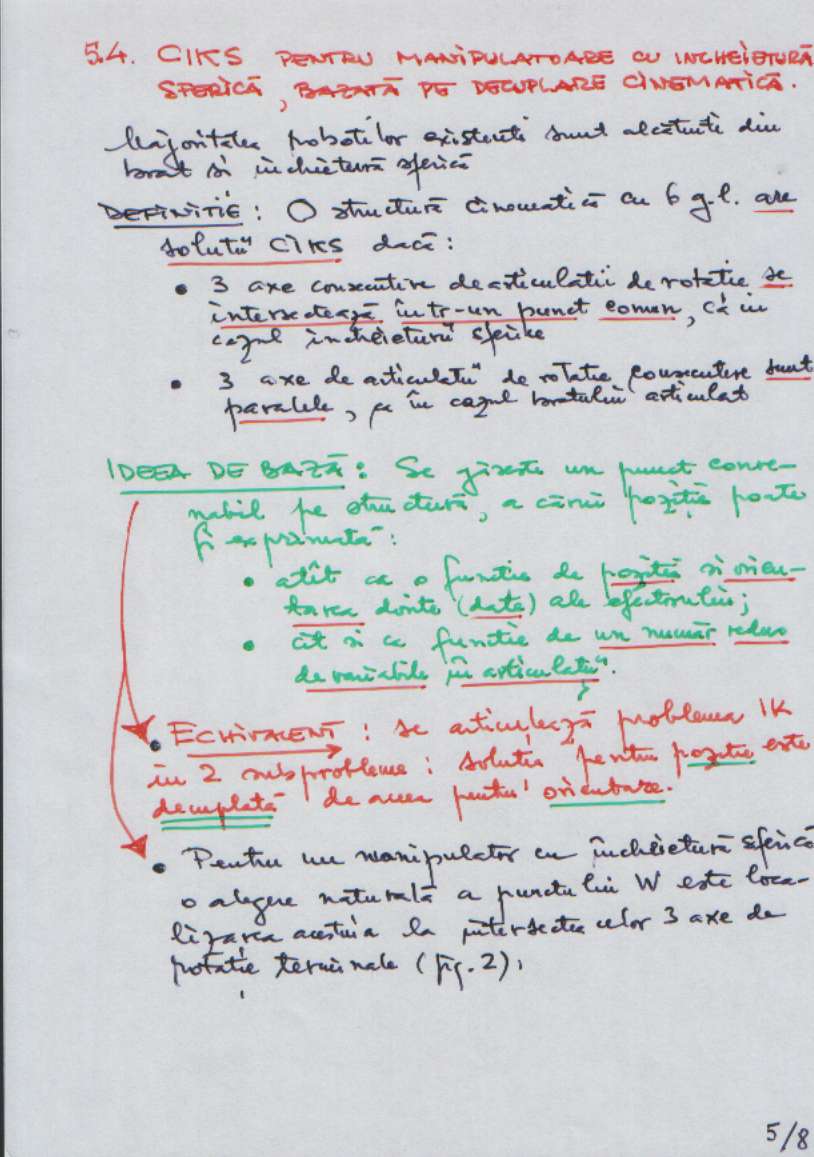 5.4. CIKS PENTRU MANIPULATOARE CU INCHEIETURĂ
SFERICĂ, BAZATĂ PE DECUPLARE CINEMATICĂ.
Majoritatea roboților existenți sunt alcătuiți din
braț și încheietură sferică
DEFINIȚIE : O structură cinematică cu 6 g.l. are
soluții CIKS dacă :
• 3 axe consecutive de articulații de rotație se
intersectează într-un punct comun, ca în
cazul încheieturii sferice
• 3 axe de articulații de rotație consecutive sunt
paralele, ca în cazul brațului articulat
IDEEA DE BAZĂ : Se găsește un punct conve-
nabil pe structură, a cărui poziție poate
fi exprimată :
• atît ca o funcție de poziția și orien-
tarea dorite (date) ale efectorului;
• cît și ca funcție de un număr redus
de variabile în articulații.
• ECHIVALENT : se articulează problema IK
în 2 subprobleme : soluția pentru poziție este
decuplată de aceea pentru orientare.
• Pentru un manipulator cu încheietură sferică
o alegere naturală a punctului W este loca-
lizarea acestuia la intersecția celor 3 axe de
rotație terminale (fig. 2).
5/8